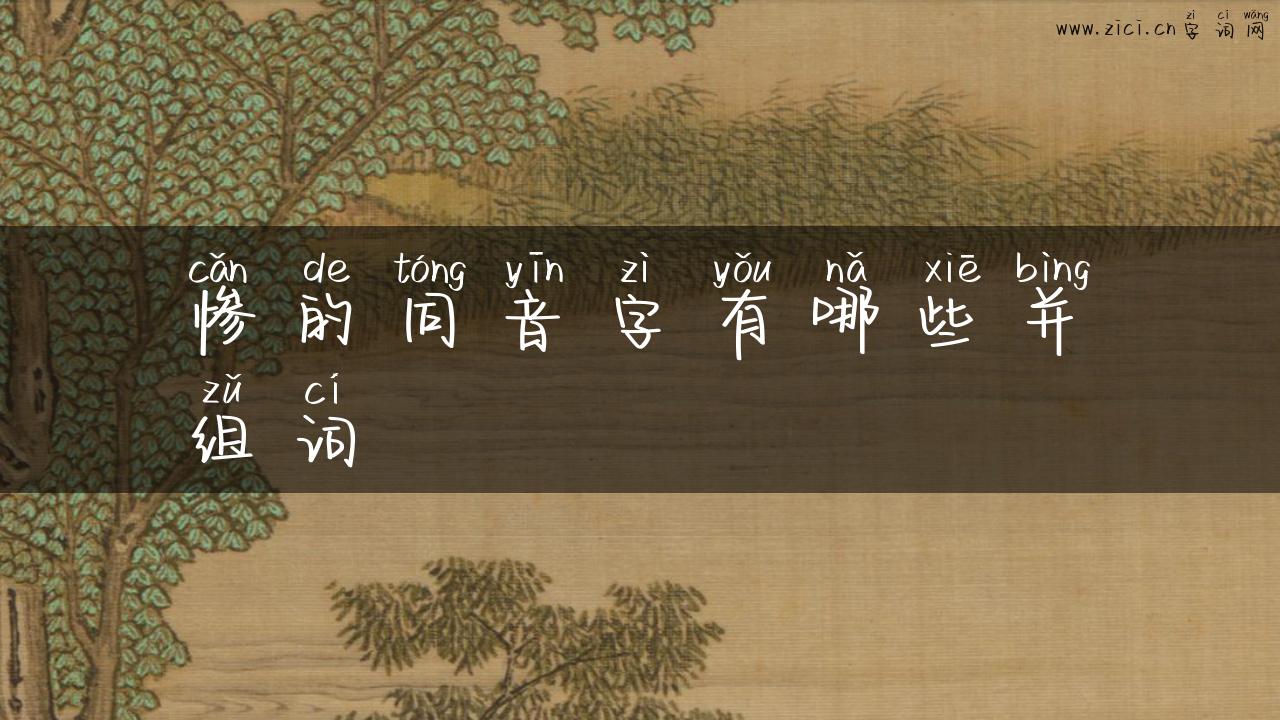 zì cí wǎng
www.zici.cn 字词网
cǎn de tóng yīn zì yǒu nǎ xiē bìng
惨的同音字有哪些并
zǔ cí
组词